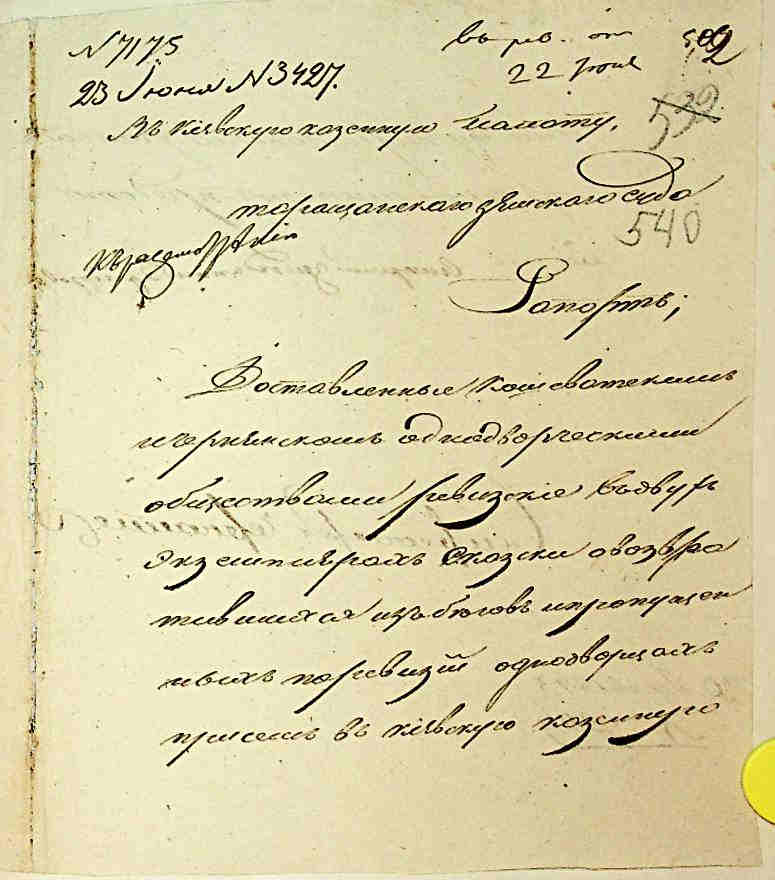 N 7175
23 Июня N 3427.
22 Июня
2
539
Въ Кіевскую казенную Палату,
Таращанскаго земскаго суда
540
Къ разсмотренію
Рапортъ;
Доставленные Кошеватскимъ
и чернинскимъ однодворческими
обществами ревизскіе въ двухъ
экземплярахъ сказки о возвра
тившихся изъ бѣговъ и пропущен
ныхъ по ревизіи однодворцахъ
при семъ въ Кіевскую казенную